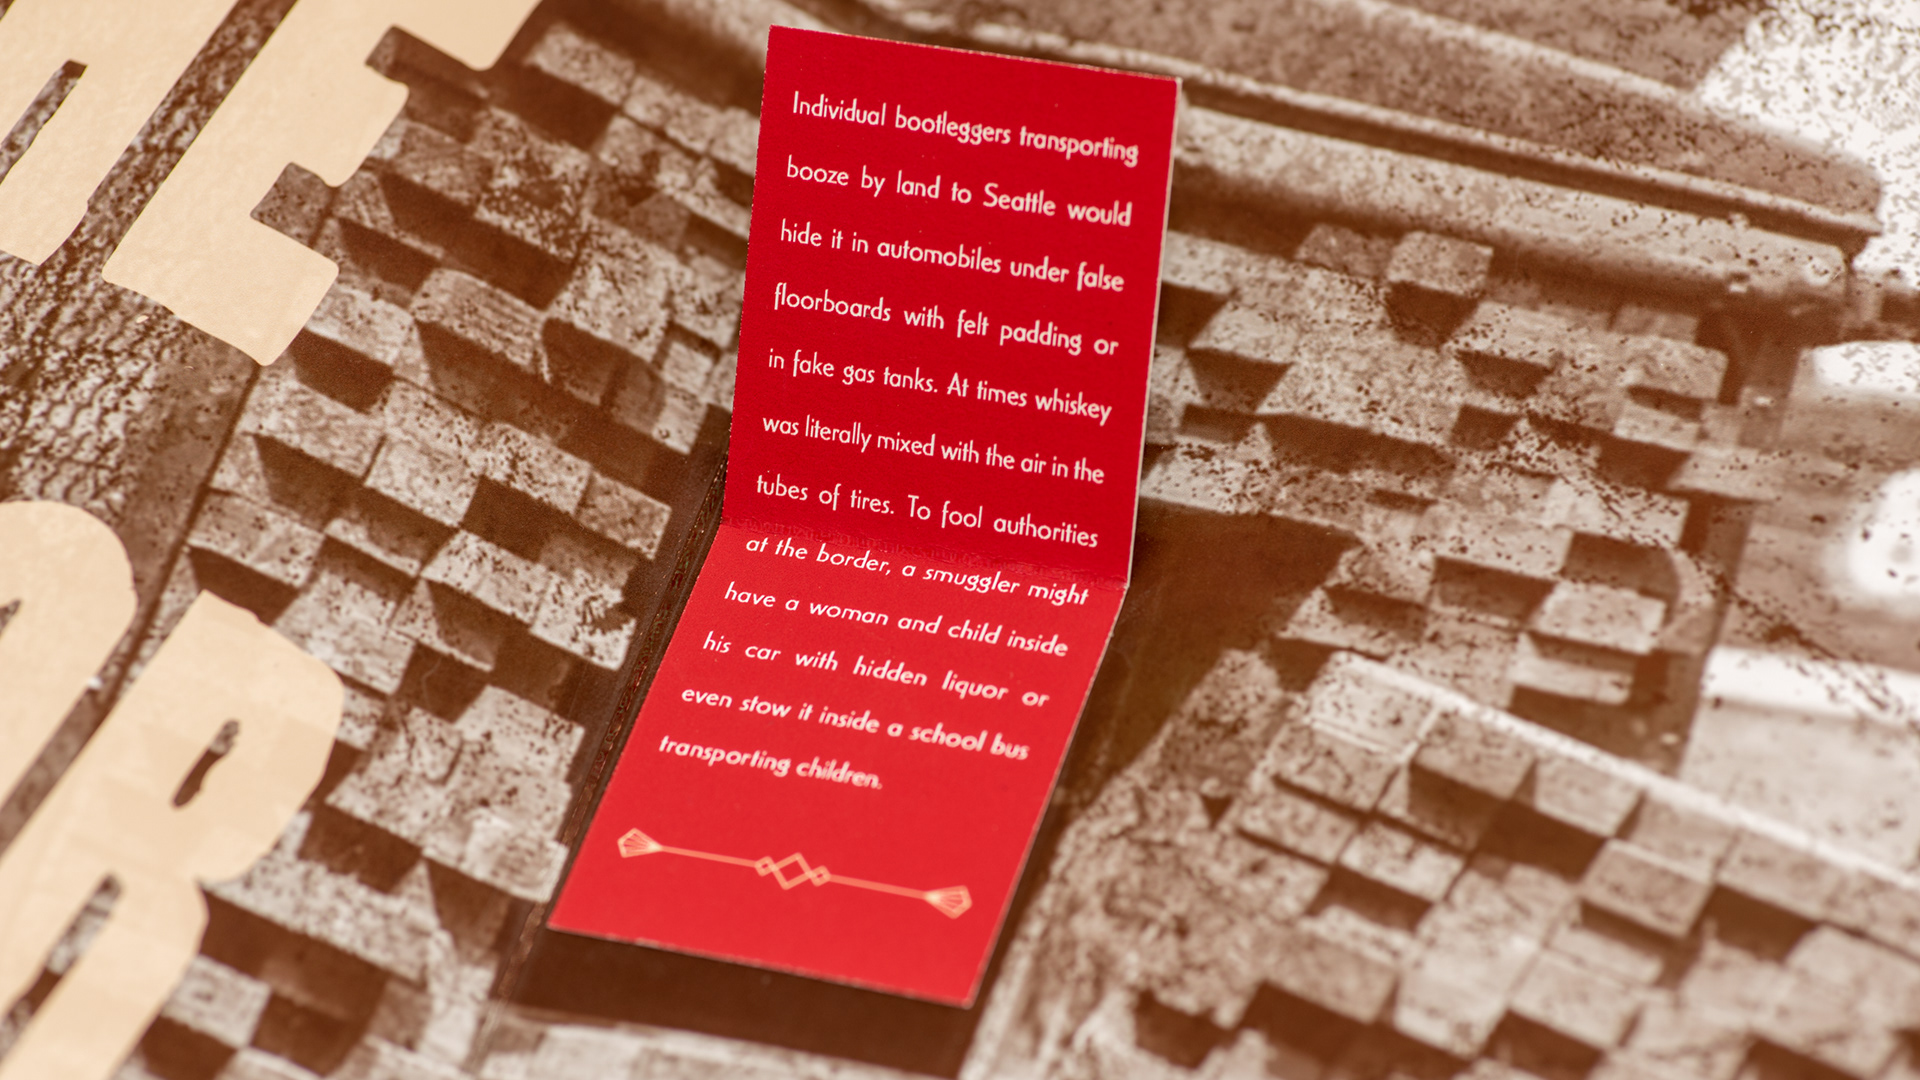 Individual bootleggers transporting
booze by land to Seattle would
hide it in automobiles under false
floorboards with felt padding or
in fake gas tanks. At times whiskey
was literally mixed with the air in the
tubes of tires. To fool authorities
at the border, a smuggler might
have a woman and child inside
his car with hidden liquor or
even stow it inside a school bus
transporting children.